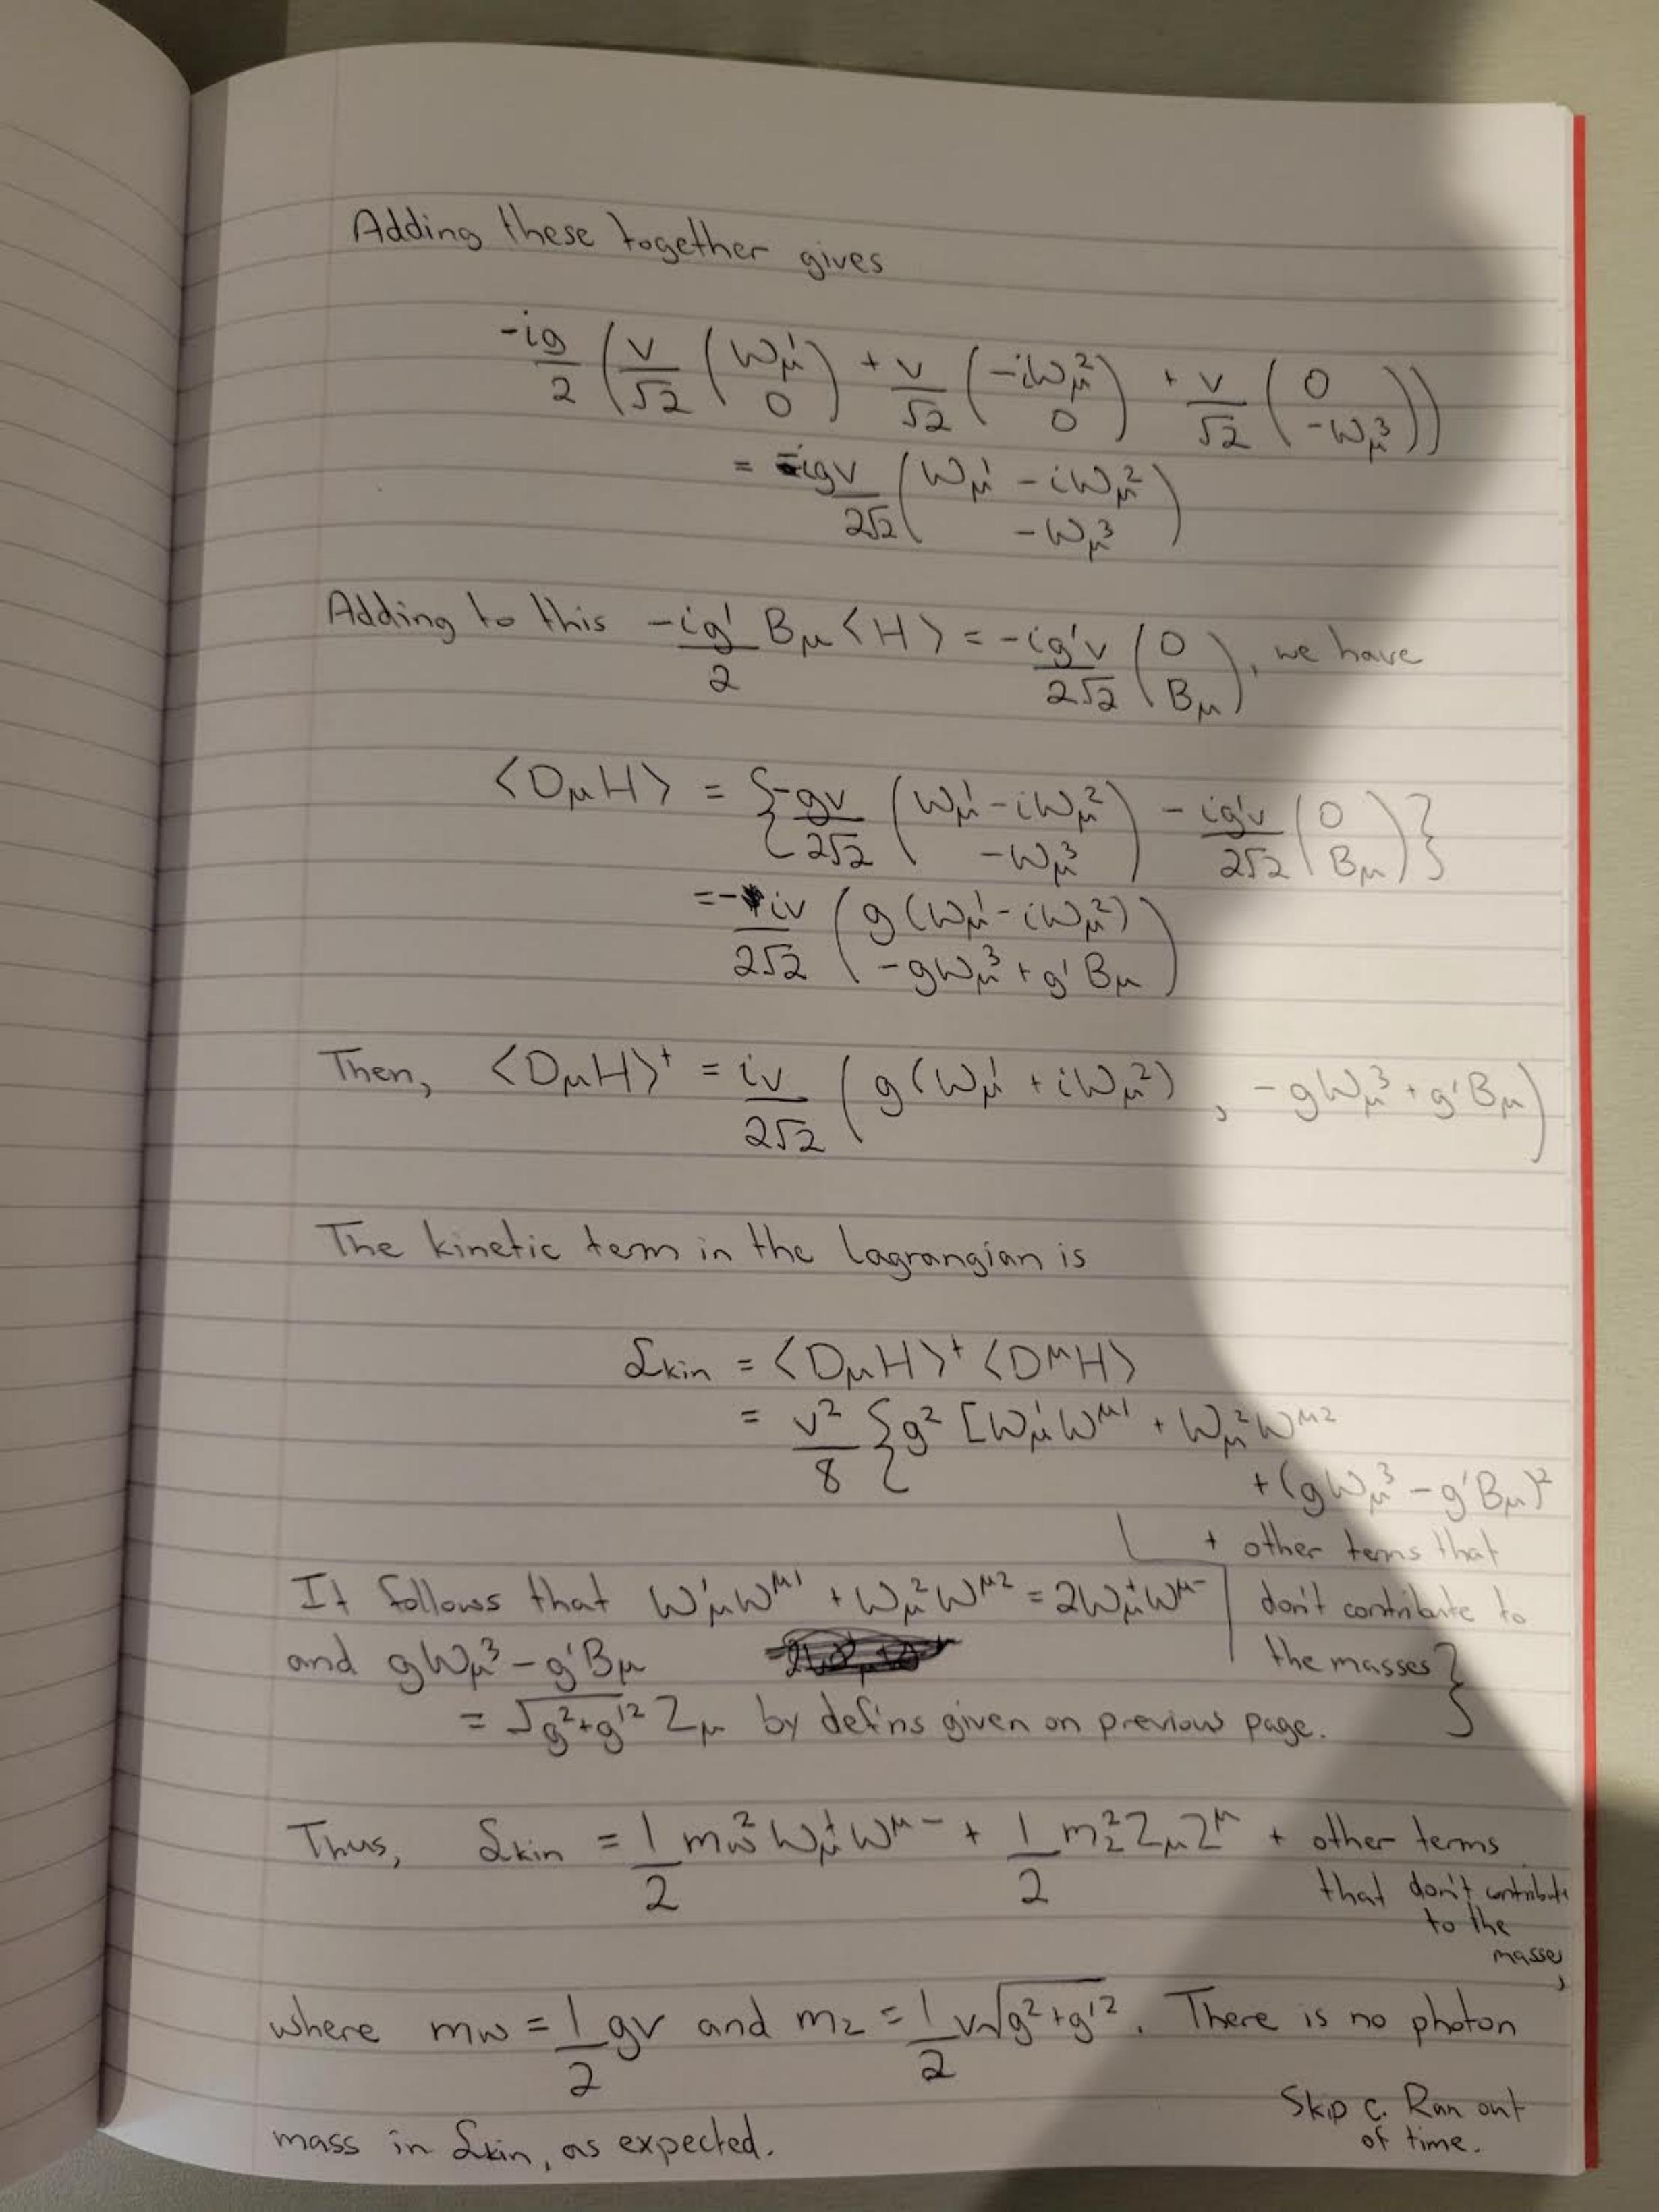 Adding these together gives
-ig/2 ( v/√2 ( W_μ^1 ; 0 ) + v/√2 ( -iW_μ^2 ; 0 ) + v/√2 ( 0 ; -W_μ^3 ) )
= -igv/2√2 ( W_μ^1 - iW_μ^2 ; -W_μ^3 )
Adding to this -ig'/2 B_μ <H> = -ig'v/2√2 ( 0 ; B_μ ), we have
<D_μ H> = { -gv/2√2 ( W_μ^1 - iW_μ^2 ; -W_μ^3 ) - ig'v/2√2 ( 0 ; B_μ ) }
= -iv/2√2 ( g(W_μ^1 - iW_μ^2) ; -gW_μ^3 + g'B_μ )
Then, <D_μ H>^† = iv/2√2 ( g(W_μ^1 + iW_μ^2) , -gW_μ^3 + g'B_μ )
The kinetic term in the Lagrangian is
ℒkin = <D_μ H>^† <D^μ H>
= v^2/8 { g^2 [W_μ^1 W^μ1 + W_μ^2 W^μ2
+ (gW_μ^3 - g'B_μ)^2
+ other terms that
don't contribute to
the masses }
It follows that W_μ^1 W^μ1 + W_μ^2 W^μ2 = 2W_μ^+ W^μ-
and gW_μ^3 - g'B_μ
= √(g^2+g'^2) Z_μ by defins given on previous page.
Thus, ℒkin = 1/2 m_W^2 W_μ^+ W^μ- + 1/2 m_Z^2 Z_μ Z^μ + other terms
that don't contribute
to the
masses,
where m_W = 1/2 gv and m_Z = 1/2 v√(g^2+g'^2). There is no photon
mass in ℒkin, as expected.
Skip c. Ran out
of time.